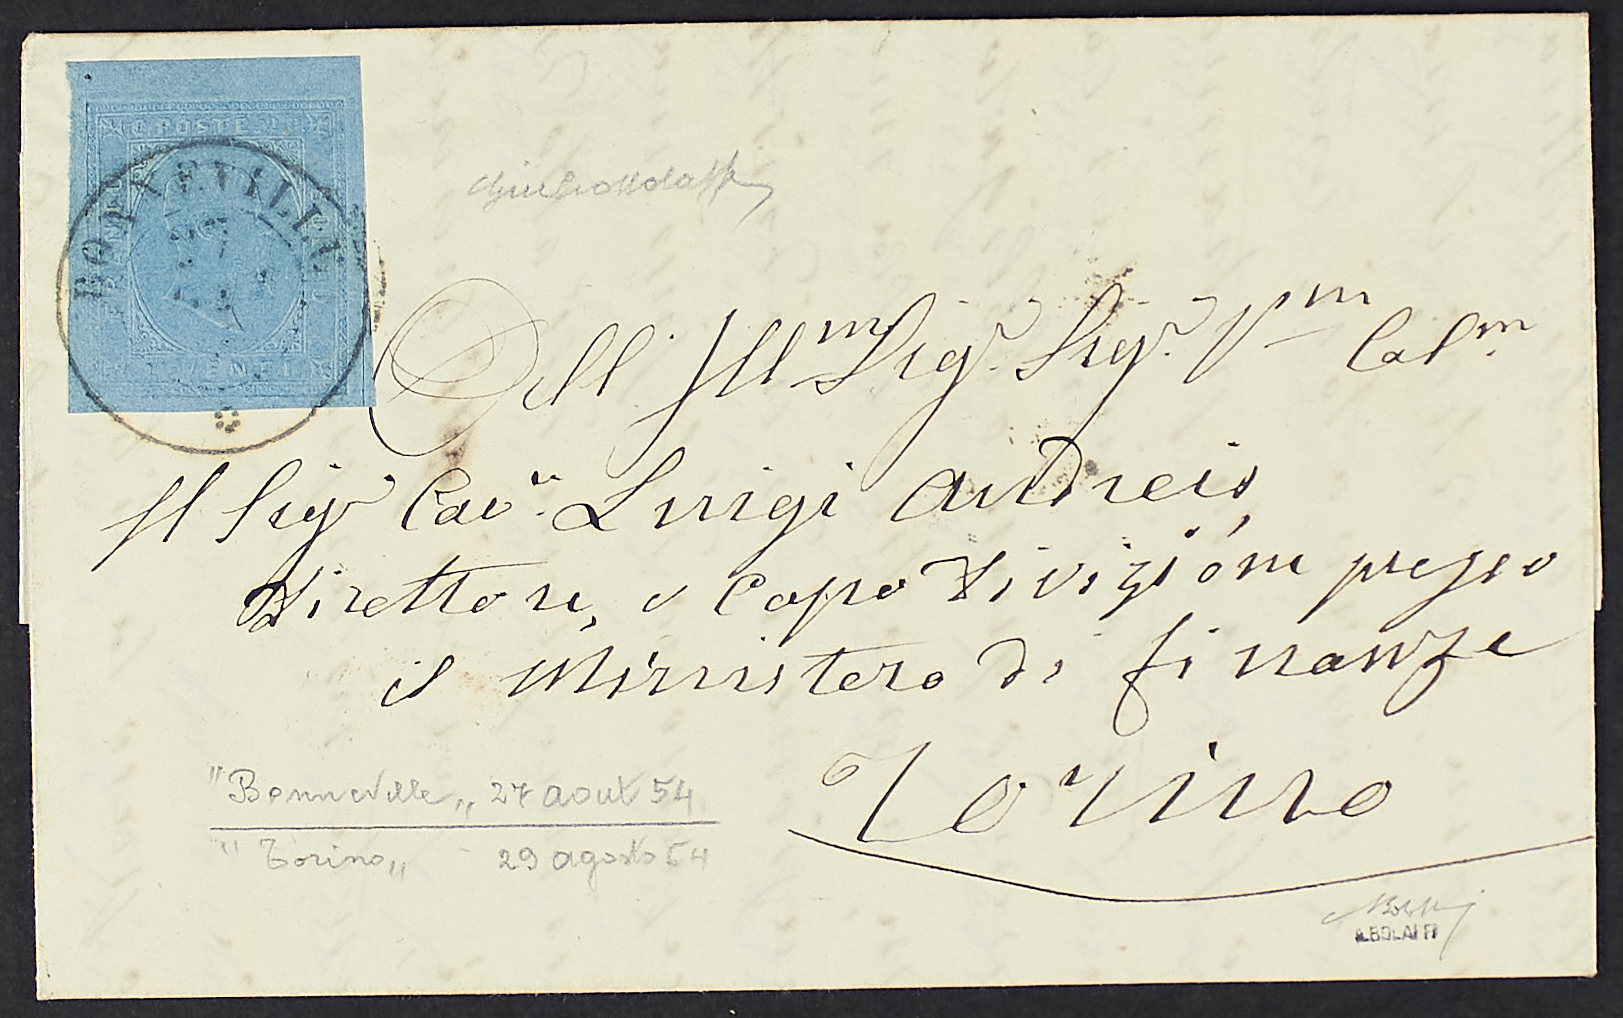 C POSTE 20
BONNEVILLE
C. VENTI
Giulio Bolaffi
All' Ill.m Sig.r Sig.r P.m Col.m
Il Sig.r Cav.re Luigi Andreis
Direttore, e Capo Divizióne presso
il Ministero di finanze
Torino
"Bonneville„ 27 aout 54
"Torino„ - 29 agosto 54
A. BOLAFFI